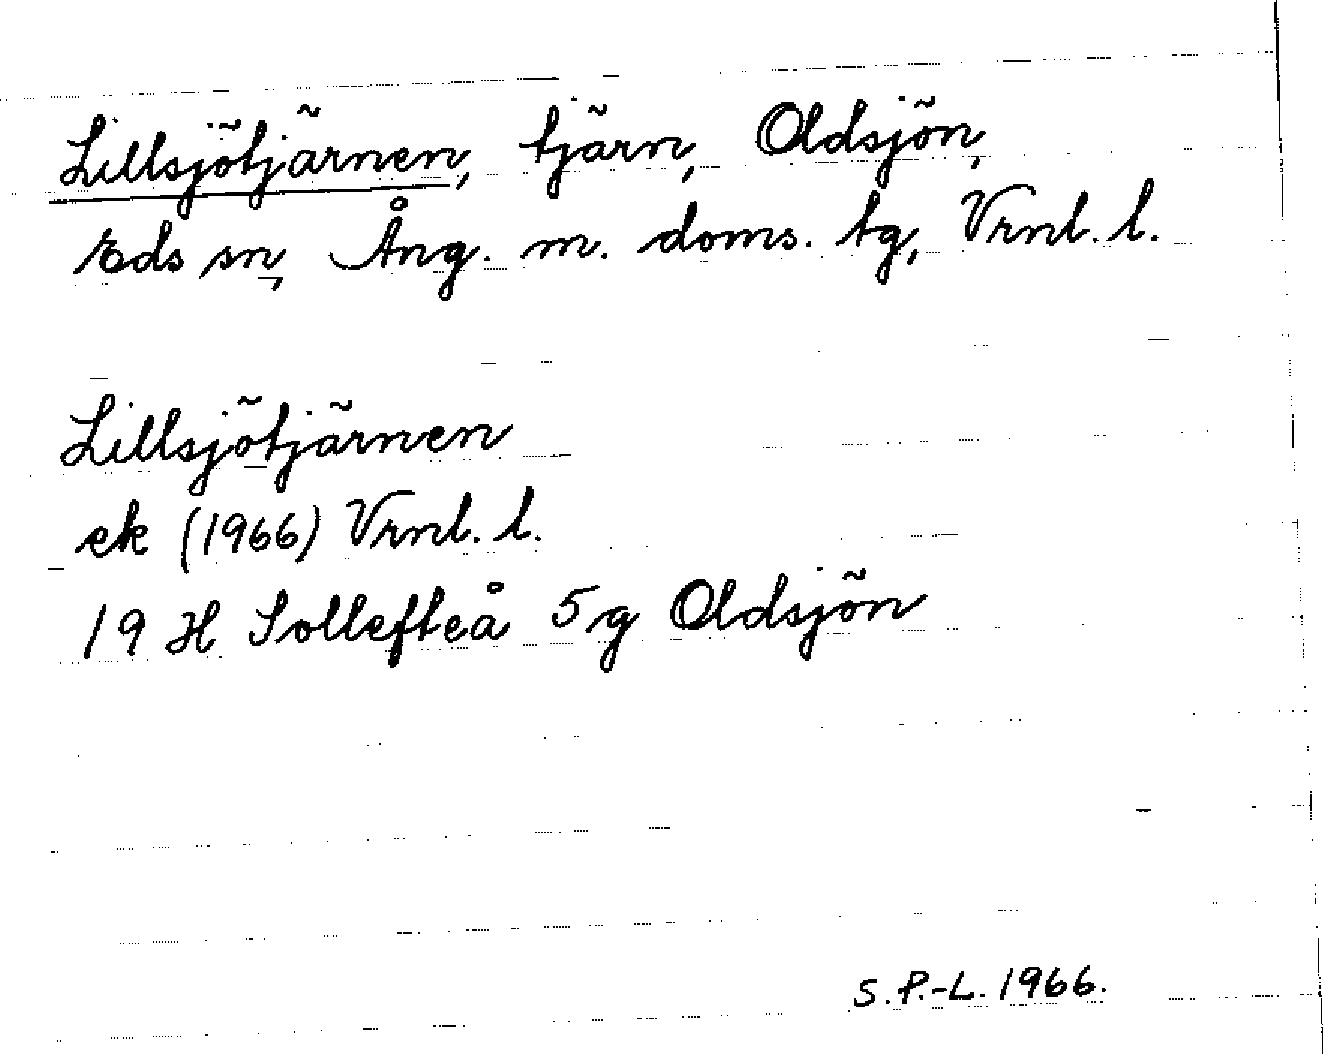 Lillsjötjärnen, tjärn, Oldsjön,
Eds sn, Ång. m. doms. tg, Vrnl. l.
Lillsjötjärnen
ek (1966) Vrnl. l.
19 H Sollefteå 5 g Oldsjön
S. P.-L. 1966.